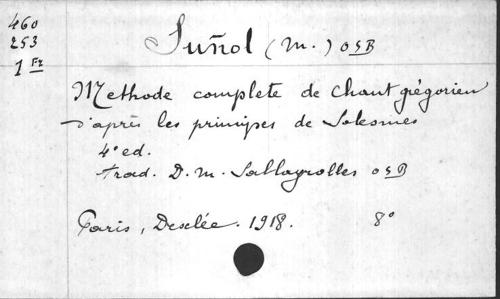 460
253
1 Fr
Suñol (M.) OSB
Methode complete de Chant grégorien
d'après les principes de Solesmes
4e ed.
trad. D. M. Sablayrolles OSB
Paris, Desclée. 1918. 8°